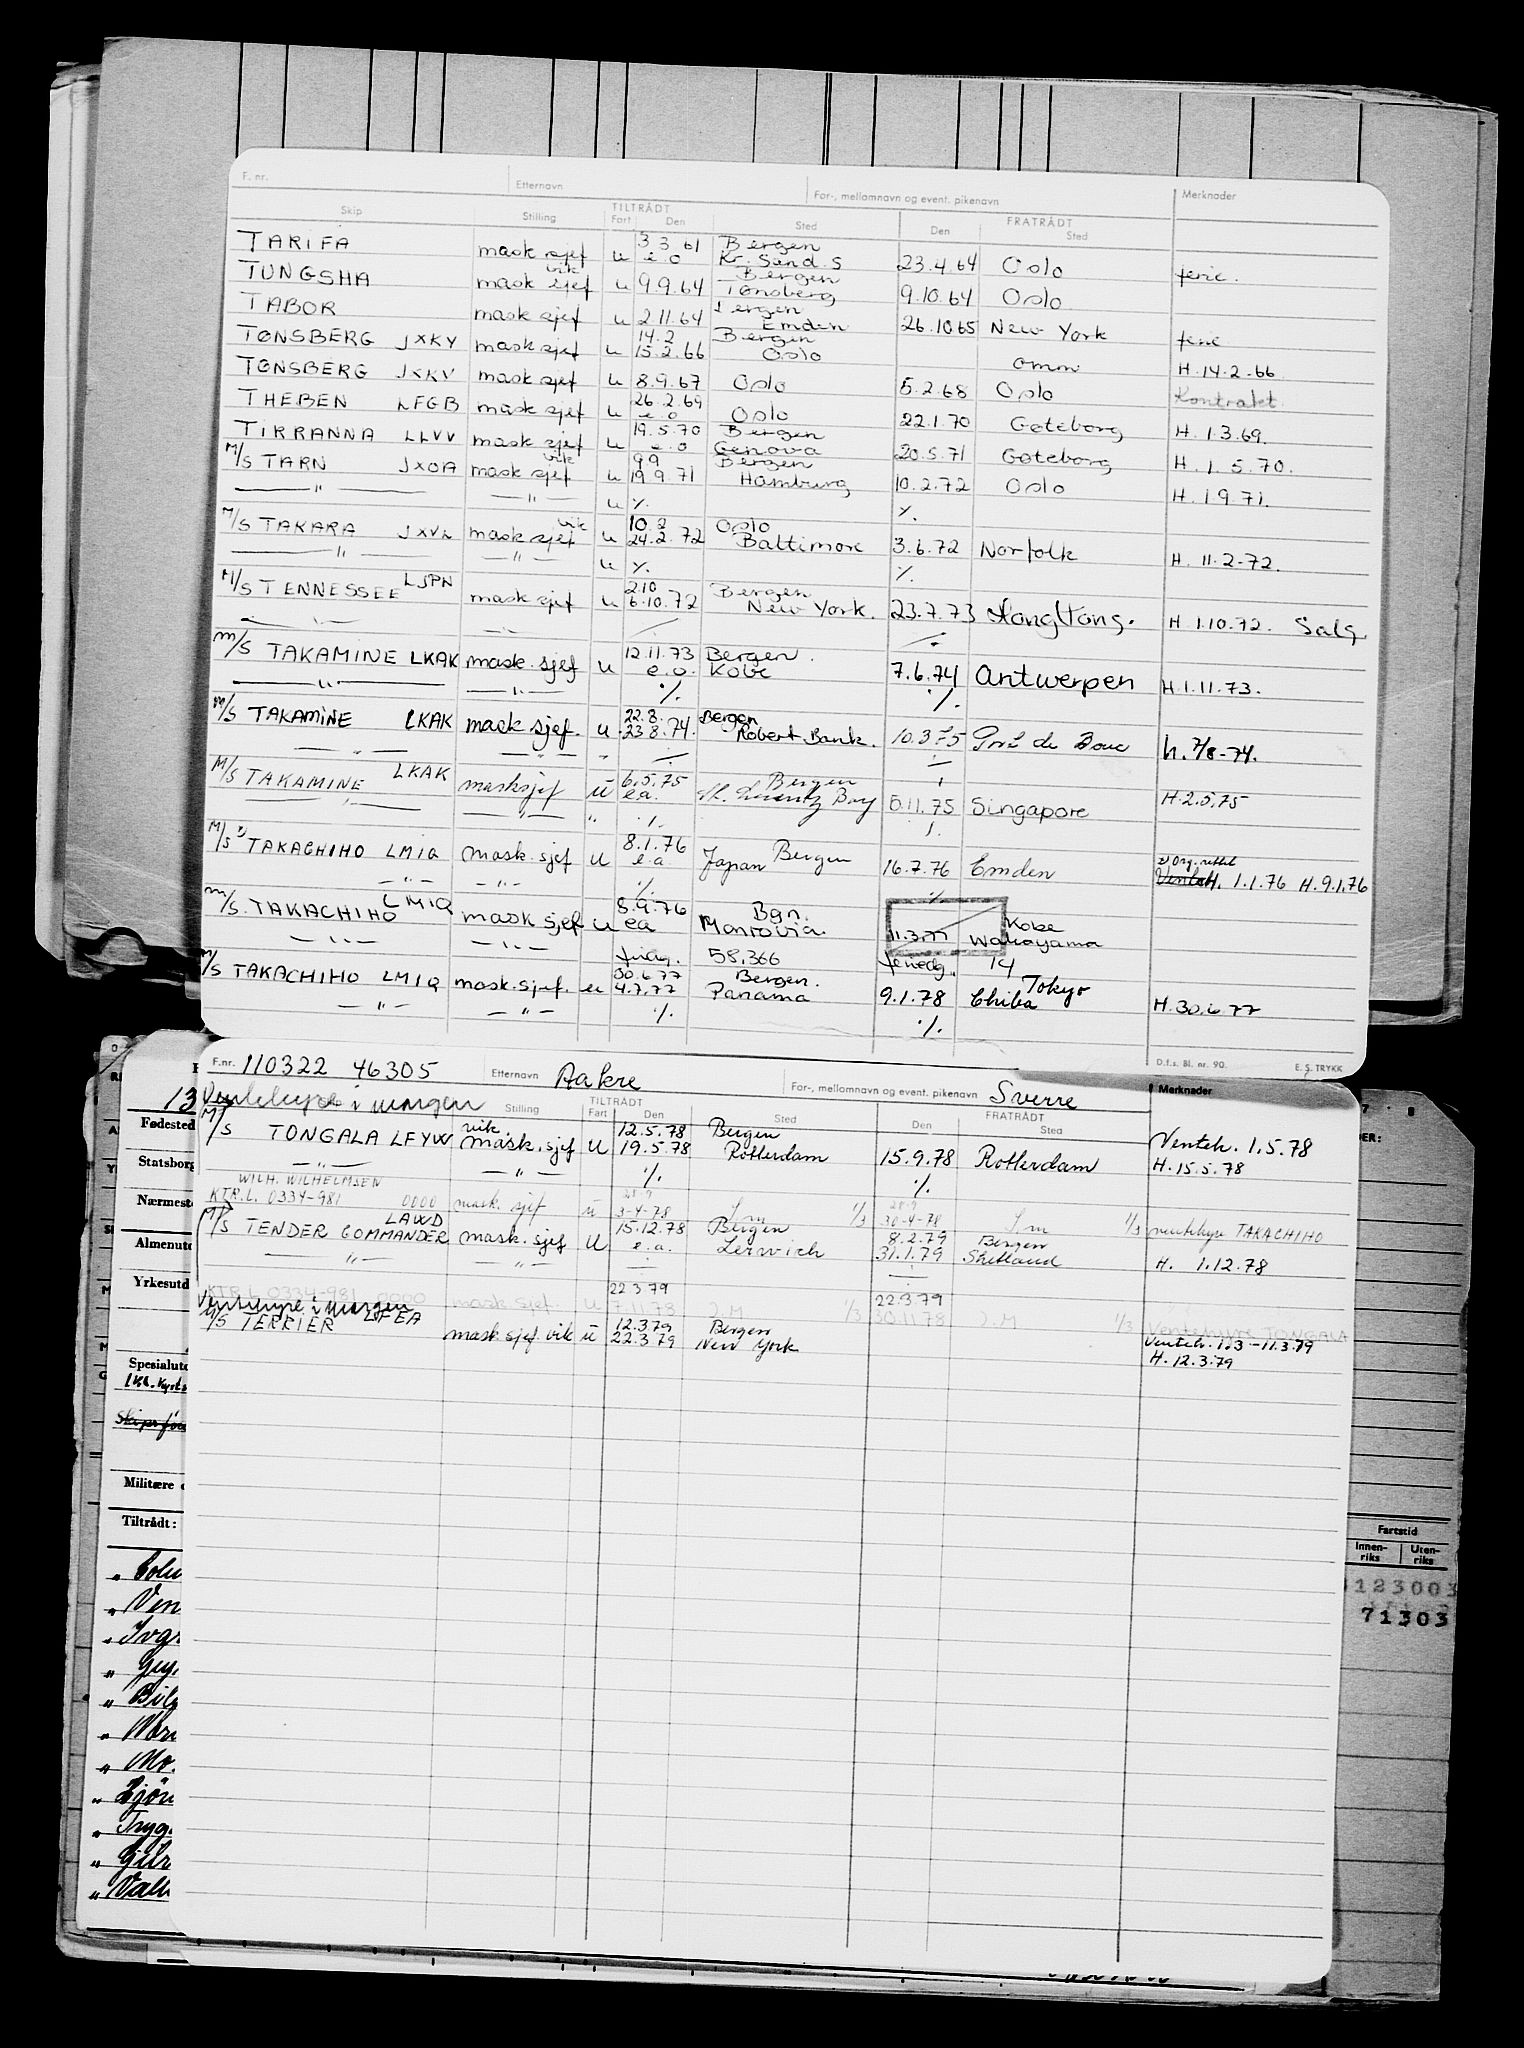 F. nr. Etternavn For-, mellomnavn og event. pikenavn Merknader
Skip Stilling TILTRÅDT Fart Den Sted Den FRATRÅDT Sted
TARIFA mask sjef u 3.3.61 e.o Bergen Kr. Sand. S 23.4.64 Oslo ferie.
TUNGSHA mask sjef vik u 9.9.64 Bergen Tønsberg 9.10.64 Oslo
TABOR mask sjef u 2.11.64 Bergen Emden 26.10.65 New York ferie
TØNSBERG JXKY mask sjef u 14.2 15.2.66 Bergen Oslo omm H. 14-2-66.
TØNSBERG JXKV mask sjef u 8.9.67 Oslo 5.2.68 Oslo Kontrakt.
THEBEN LFGB mask sjef u 26.2.69 e.o Oslo 22.1.70 Gøteborg H. 1.3.69.
TIRRANNA LLVV mask sjef u 19.5.70 e.o Bergen Genova 20.5.71 Gøteborg H. 1. 5.70.
M/S TARN JXOA mask sjef vik u 9.9 19.9.71 Bergen Hamburg 10.2.72 Oslo H. 1.9.71.
— " — — " — u %. %.
M/S TAKARA JXVL mask sjef vik u 10.2 24.2.72 Oslo Baltimore 3.6.72 Norfolk H. 11.2-72.
— " — — " — u %. %.
M/S TENNESSEE LJPN mask sjef u 2.10 6.10.72 Bergen New York. 23.7.73 Hong Kong. H 1.10.72. Salg.
— " — — " —
M/S TAKAMINE LKAK mask. sjef u 12.11.73 e.o. Bergen. Kobe 7.6.74 Antwerpen H. 1.11.73.
— " — — " — %. %.
M/S TAKAMINE LKAK mask sjef. u 22.8. 23.8.74. Bergen Robert Bank. 10.3.75 Port de Bouc h. 7/8-74.
— " — — " — "
M/S TAKAMINE LKAK masksjef u 6.5.75 ea. Bergen Bay 5.11.75 Singapore H.2.5.75
— " — — " — " %. %.
M/S TAKACHIHO LMIQ mask. sjef u 8.1.76 e.a. Japan Bergen 16.7.76 Emden Venteh. 1.1.76 H. 9.1.76
— " — — " — %. %.
M/S. TAKACHIHO LMIQ mask sjef u 8.9.76 ea Bgn. Monrovia. 11.3.77 Kobe Wakayama
— " — — " — 58,366 feriedg. 14
M/S TAKACHIHO LMIQ mask.sjef. u 30.6.77 4.7.77 Bergen. Panama 9.1.78 Tokyo Chiba H. 30.6.77
— " — — " — %. %.
D.f.s. Bl. nr. 90. E. S. TRYKK
F.nr. 110322 46305 Etternavn Aakre For-, mellomnavn og event. pikenavn Sverre Merknader
Ventehyre i margen Stilling TILTRÅDT Fart Den Sted Den FRATRÅDT Sted
M/S TONGALA LFYW vik. mask. sjef u 12.5.78 19.5.78 Bergen Rotterdam 15.9.78 Rotterdam Venteh. 1.5.78 H. 15.5.78
— " — — " — %. %.
WILH. WILHELMSEN
KTR.L. 0334-981 0000 mask. sjef u 3-4-78 I m 1/3 30-4-78 I m 1/3 ventehyre TAKACHIHO
M/S TENDER COMMANDER LAWD mask. sjef u 15.12.78 e.a. Bergen Lerwick 8.2.79 31.1.79 Bergen Shetland H. 1.12.78
— " — — " —
22.3.79 22.3.79
KTR.L 0334-981 0000 mask sjef. u 7.11.78 I.M 1/3 30.11.78 I.M 1/3 Ventehyre TONGALA
Ventehyre i margen
M/S TERRIER LFEA mask sjef vik u 12.3.79 22.3.79 Bergen New York Venteh. 1.3-11.3.79 H. 12.3.79
13
Fødested
Statsborg
Nærmest
Almenutd
Yrkesutd
Spesialutd
Militære
Tiltrådt:
DER:
Fartstid
Innen-riks Uten-riks
123003
71303